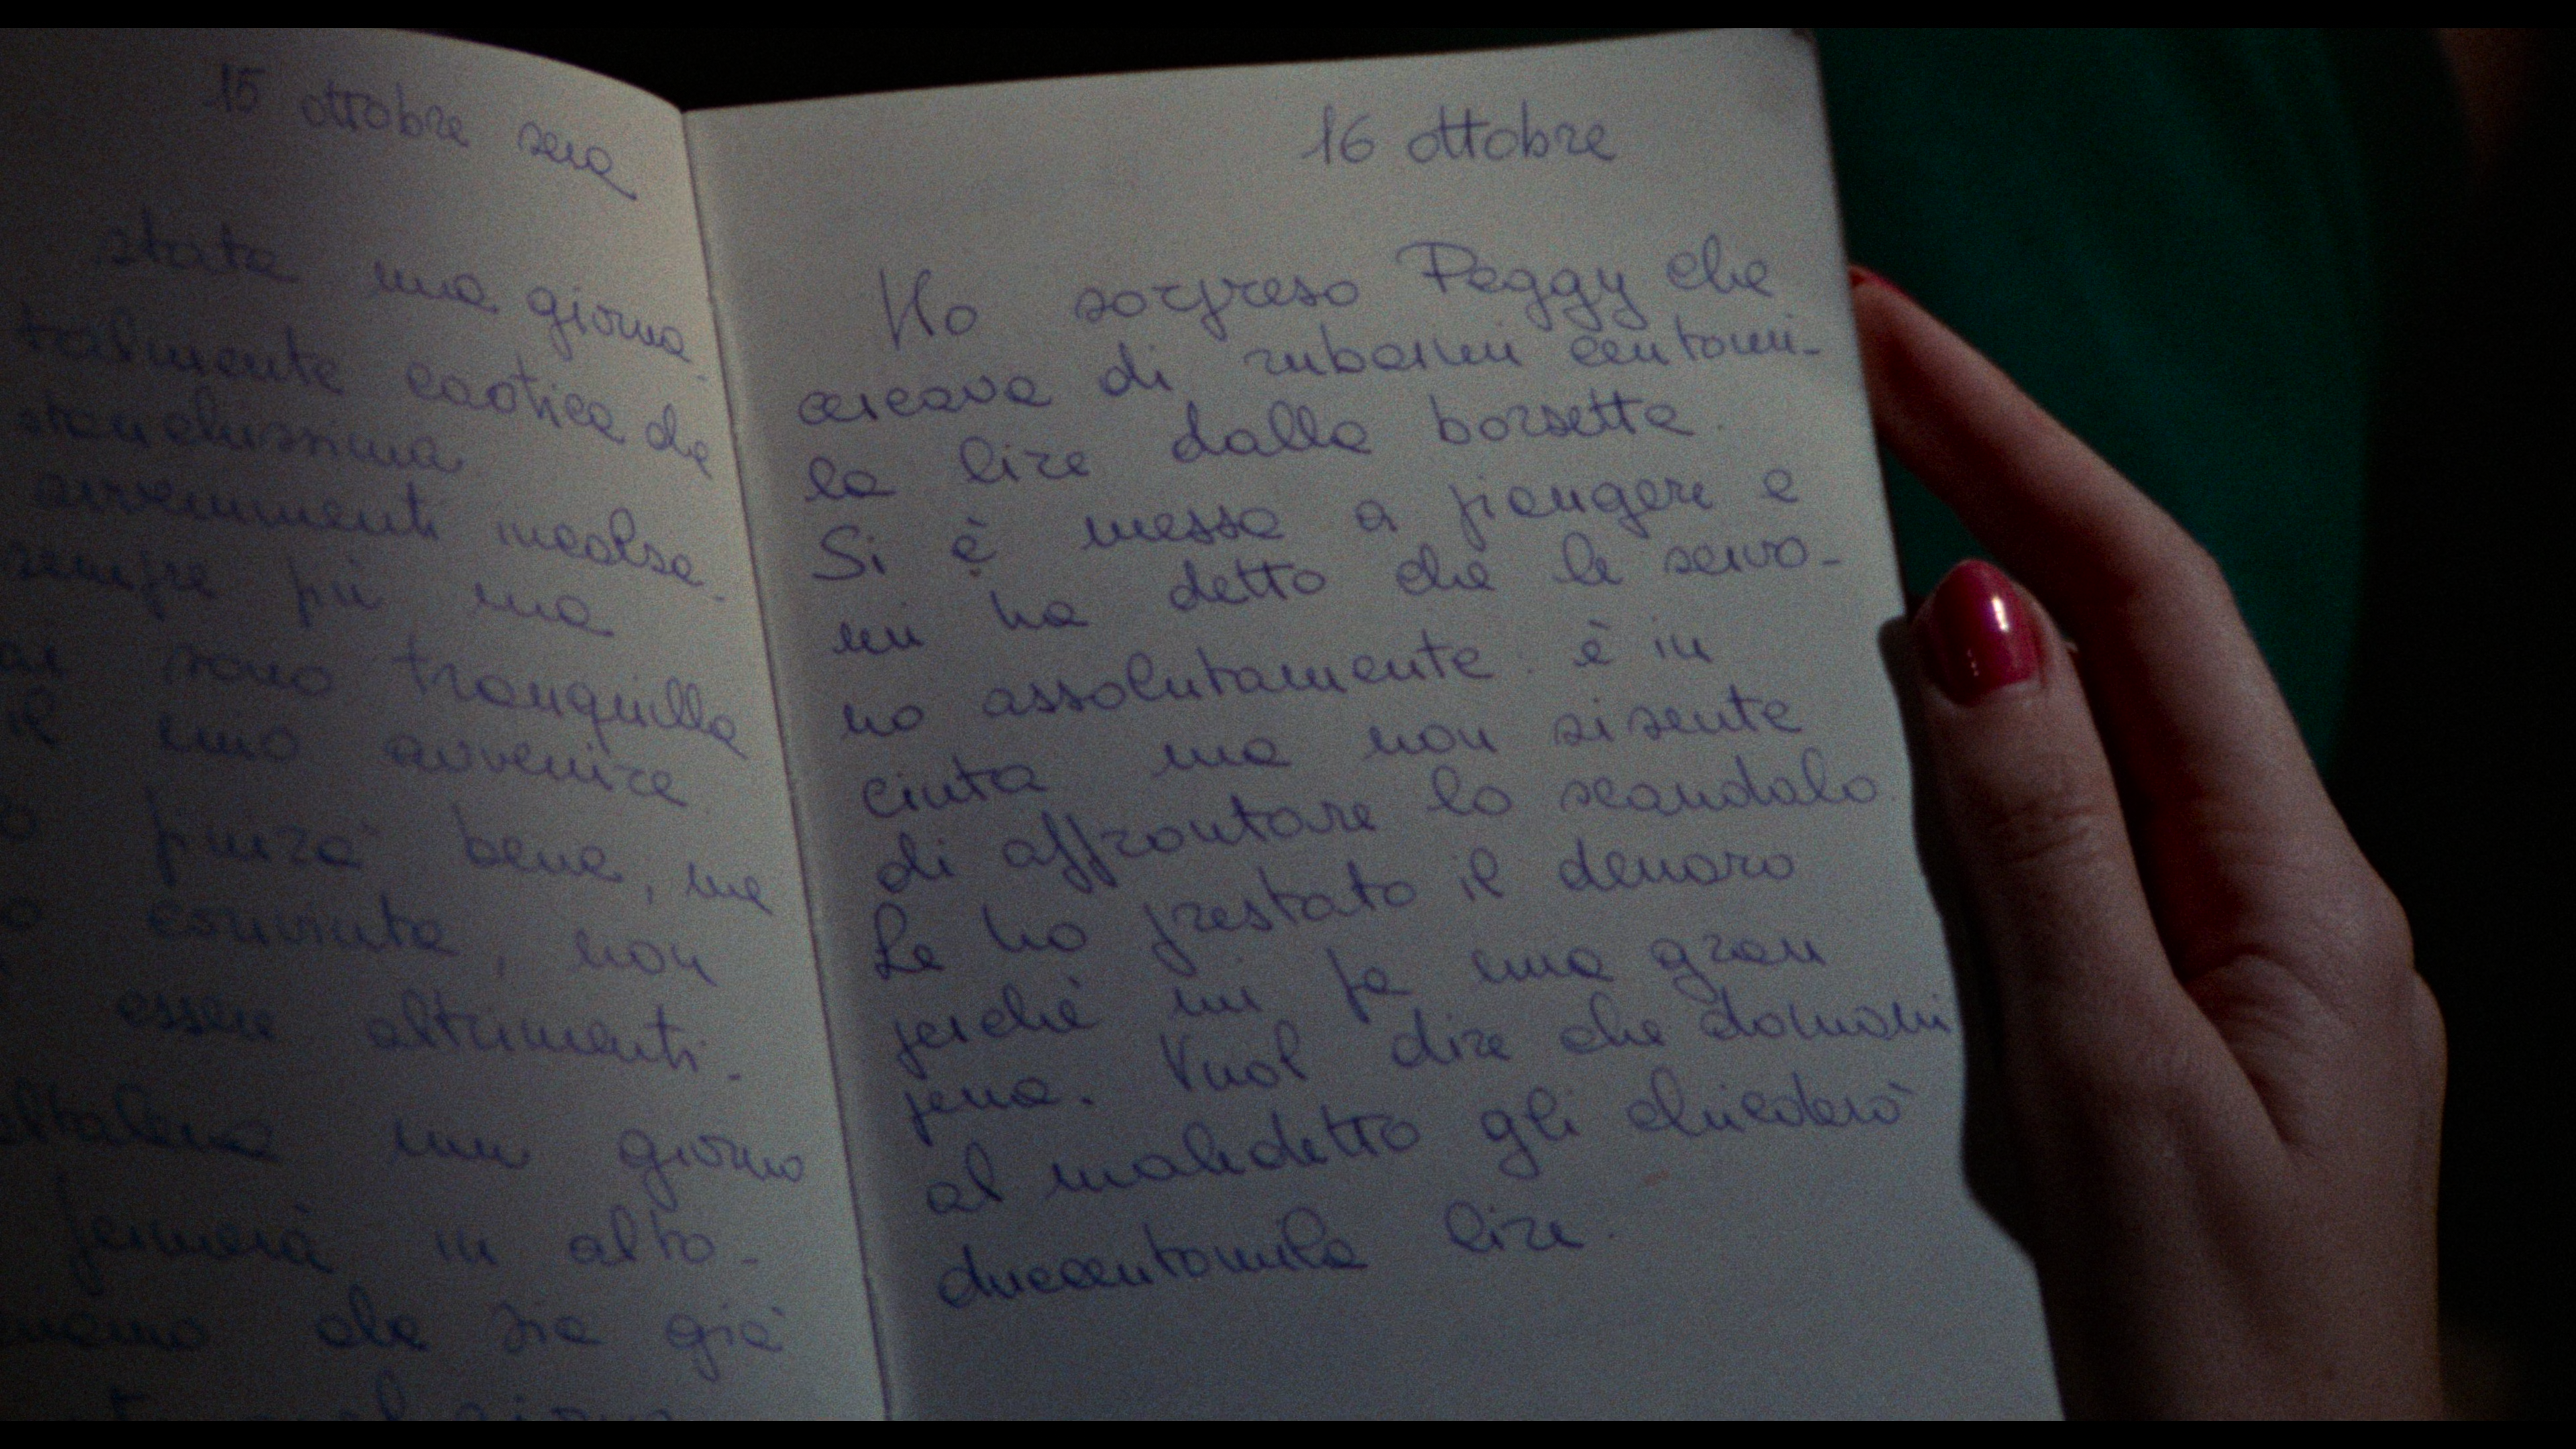 15 ottobre sera
stata una giorna
talmente caotica che
stanchissima
avvenimenti incalza
sempre più ma
sono tranquilla
il mio avvenire
finirà bene, me
convinta, non
essere altrimenti.
altalena un giorno
fermerà in alto.
che sia già
16 ottobre
Ho sorpreso Peggy che
cercava di rubarmi centomi-
la lire dalla borsetta.
Si è messa a piangere e
mi ha detto che le servo-
no assolutamente: è in
cinta ma non si sente
di affrontare lo scandalo.
Le ho prestato il denaro
perché mi fa una gran
pena. Vuol dire che domani
al maledetto gli chiederò
duecentomila lire.